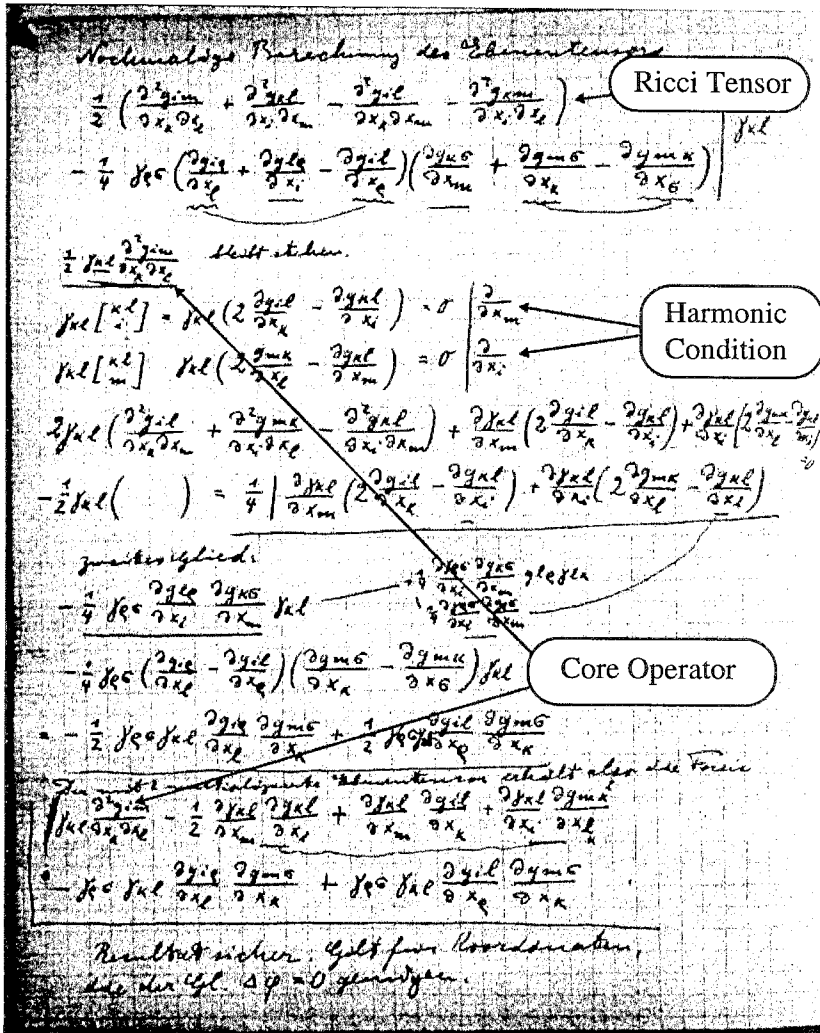 Nochmalige Berechnung des Ebenentensors
1/2 (∂²g_im/∂x_κ∂x_l + ∂²g_κl/∂x_i∂x_m − ∂²g_il/∂x_κ∂x_m − ∂²g_κm/∂x_i∂x_l)
Ricci Tensor
γ_κl
− 1/4 γ_ρσ (∂g_iρ/∂x_l + ∂g_lρ/∂x_i − ∂g_il/∂x_ρ)(∂g_κσ/∂x_m + ∂g_mσ/∂x_κ − ∂g_mκ/∂x_σ)
1/2 γ_κl ∂²g_im/∂x_κ∂x_l bleibt stehen.
γ_κl [κl i] = γ_κl (2 ∂g_il/∂x_κ − ∂g_κl/∂x_i) = 0 | ∂/∂x_m
Harmonic
Condition
γ_κl [κl m] γ_κl (2 ∂g_mκ/∂x_l − ∂g_κl/∂x_m) = 0 | ∂/∂x_i
2γ_κl (∂²g_il/∂x_κ∂x_m + ∂²g_mκ/∂x_i∂x_l − ∂²g_κl/∂x_i∂x_m) + ∂γ_κl/∂x_m (2 ∂g_il/∂x_κ − ∂g_κl/∂x_i) + ∂γ_κl/∂x_i (2 ∂g_mκ/∂x_l − ∂g_κl/∂x_m) = 0
− 1/2 γ_κl ( ) = 1/4 | ∂γ_κl/∂x_m (2 ∂g_il/∂x_κ − ∂g_κl/∂x_i) + ∂γ_κl/∂x_i (2 ∂g_mκ/∂x_l − ∂g_κl/∂x_i)
zweites Glied:
− 1/4 γ_ρσ ∂g_lρ/∂x_i ∂g_κσ/∂x_m γ_κl
− 1/4 γ_ρσ (∂g_iρ/∂x_l − ∂g_il/∂x_ρ)(∂g_mσ/∂x_κ − ∂g_mκ/∂x_σ) γ_κl
Core Operator
= − 1/2 γ_ρσ γ_κl ∂g_iρ/∂x_l ∂g_mσ/∂x_κ + 1/2 γ_ρσ γ_κl ∂g_il/∂x_ρ ∂g_mσ/∂x_κ
Der mit 2 multiplizierte Ebenentensor erhält also die Form
γ_κl ∂²g_im/∂x_κ∂x_l − 1/2 ∂γ_κl/∂x_m ∂g_κl/∂x_i + ∂γ_κl/∂x_m ∂g_il/∂x_κ + ∂γ_κl/∂x_i ∂g_mκ/∂x_l
− γ_ρσ γ_κl ∂g_iρ/∂x_l ∂g_mσ/∂x_κ + γ_ρσ γ_κl ∂g_il/∂x_ρ ∂g_mσ/∂x_κ
Resultat sicher. Gilt für Koordinaten,
die der Gl. Δφ = 0 genügen.